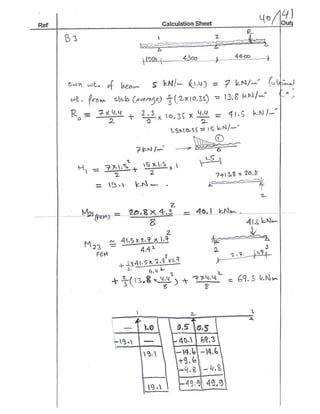 40/141
Ref
Calculation Sheet
Outp
B3
1 2 R 3
1500 4300 4400
own wt. of beam 5 kN/m (1.4) = 7 kN/m
wt. from slab (average) 2/3 (2×10.35) = 13.8 kN/m
= 7×4.4/2 + × 10.35 × 4.4/2 = 41.5 kN/m
1.5×10.35=15 kN/m
7 kN/m
1.5
M1 = 7×1.5²/2 + 15×1.5/2 × 1
= 19.1 kNm.
7+13.8 = 20.8
M21 (FEM) = 20.8 × 4.3²/8 = 40.1 kNm
41.5 kNm
M23 FEM ≈ 41.5×2.7×1.7²/4.4²
+ ½×41.5×2.7²×1.7/4.4²
2 2.7 3
+ 2/3 (13.8 × 4.4²/8) + 7×4.4²/8 = 69.3 kNm
1 2 3
— 1.0 0.5 0.5
-19.1 — -40.1 69.3
19.1 -14.6 -14.6
+9.6
-4.8 -4.8
19.1 -49.9 49.9